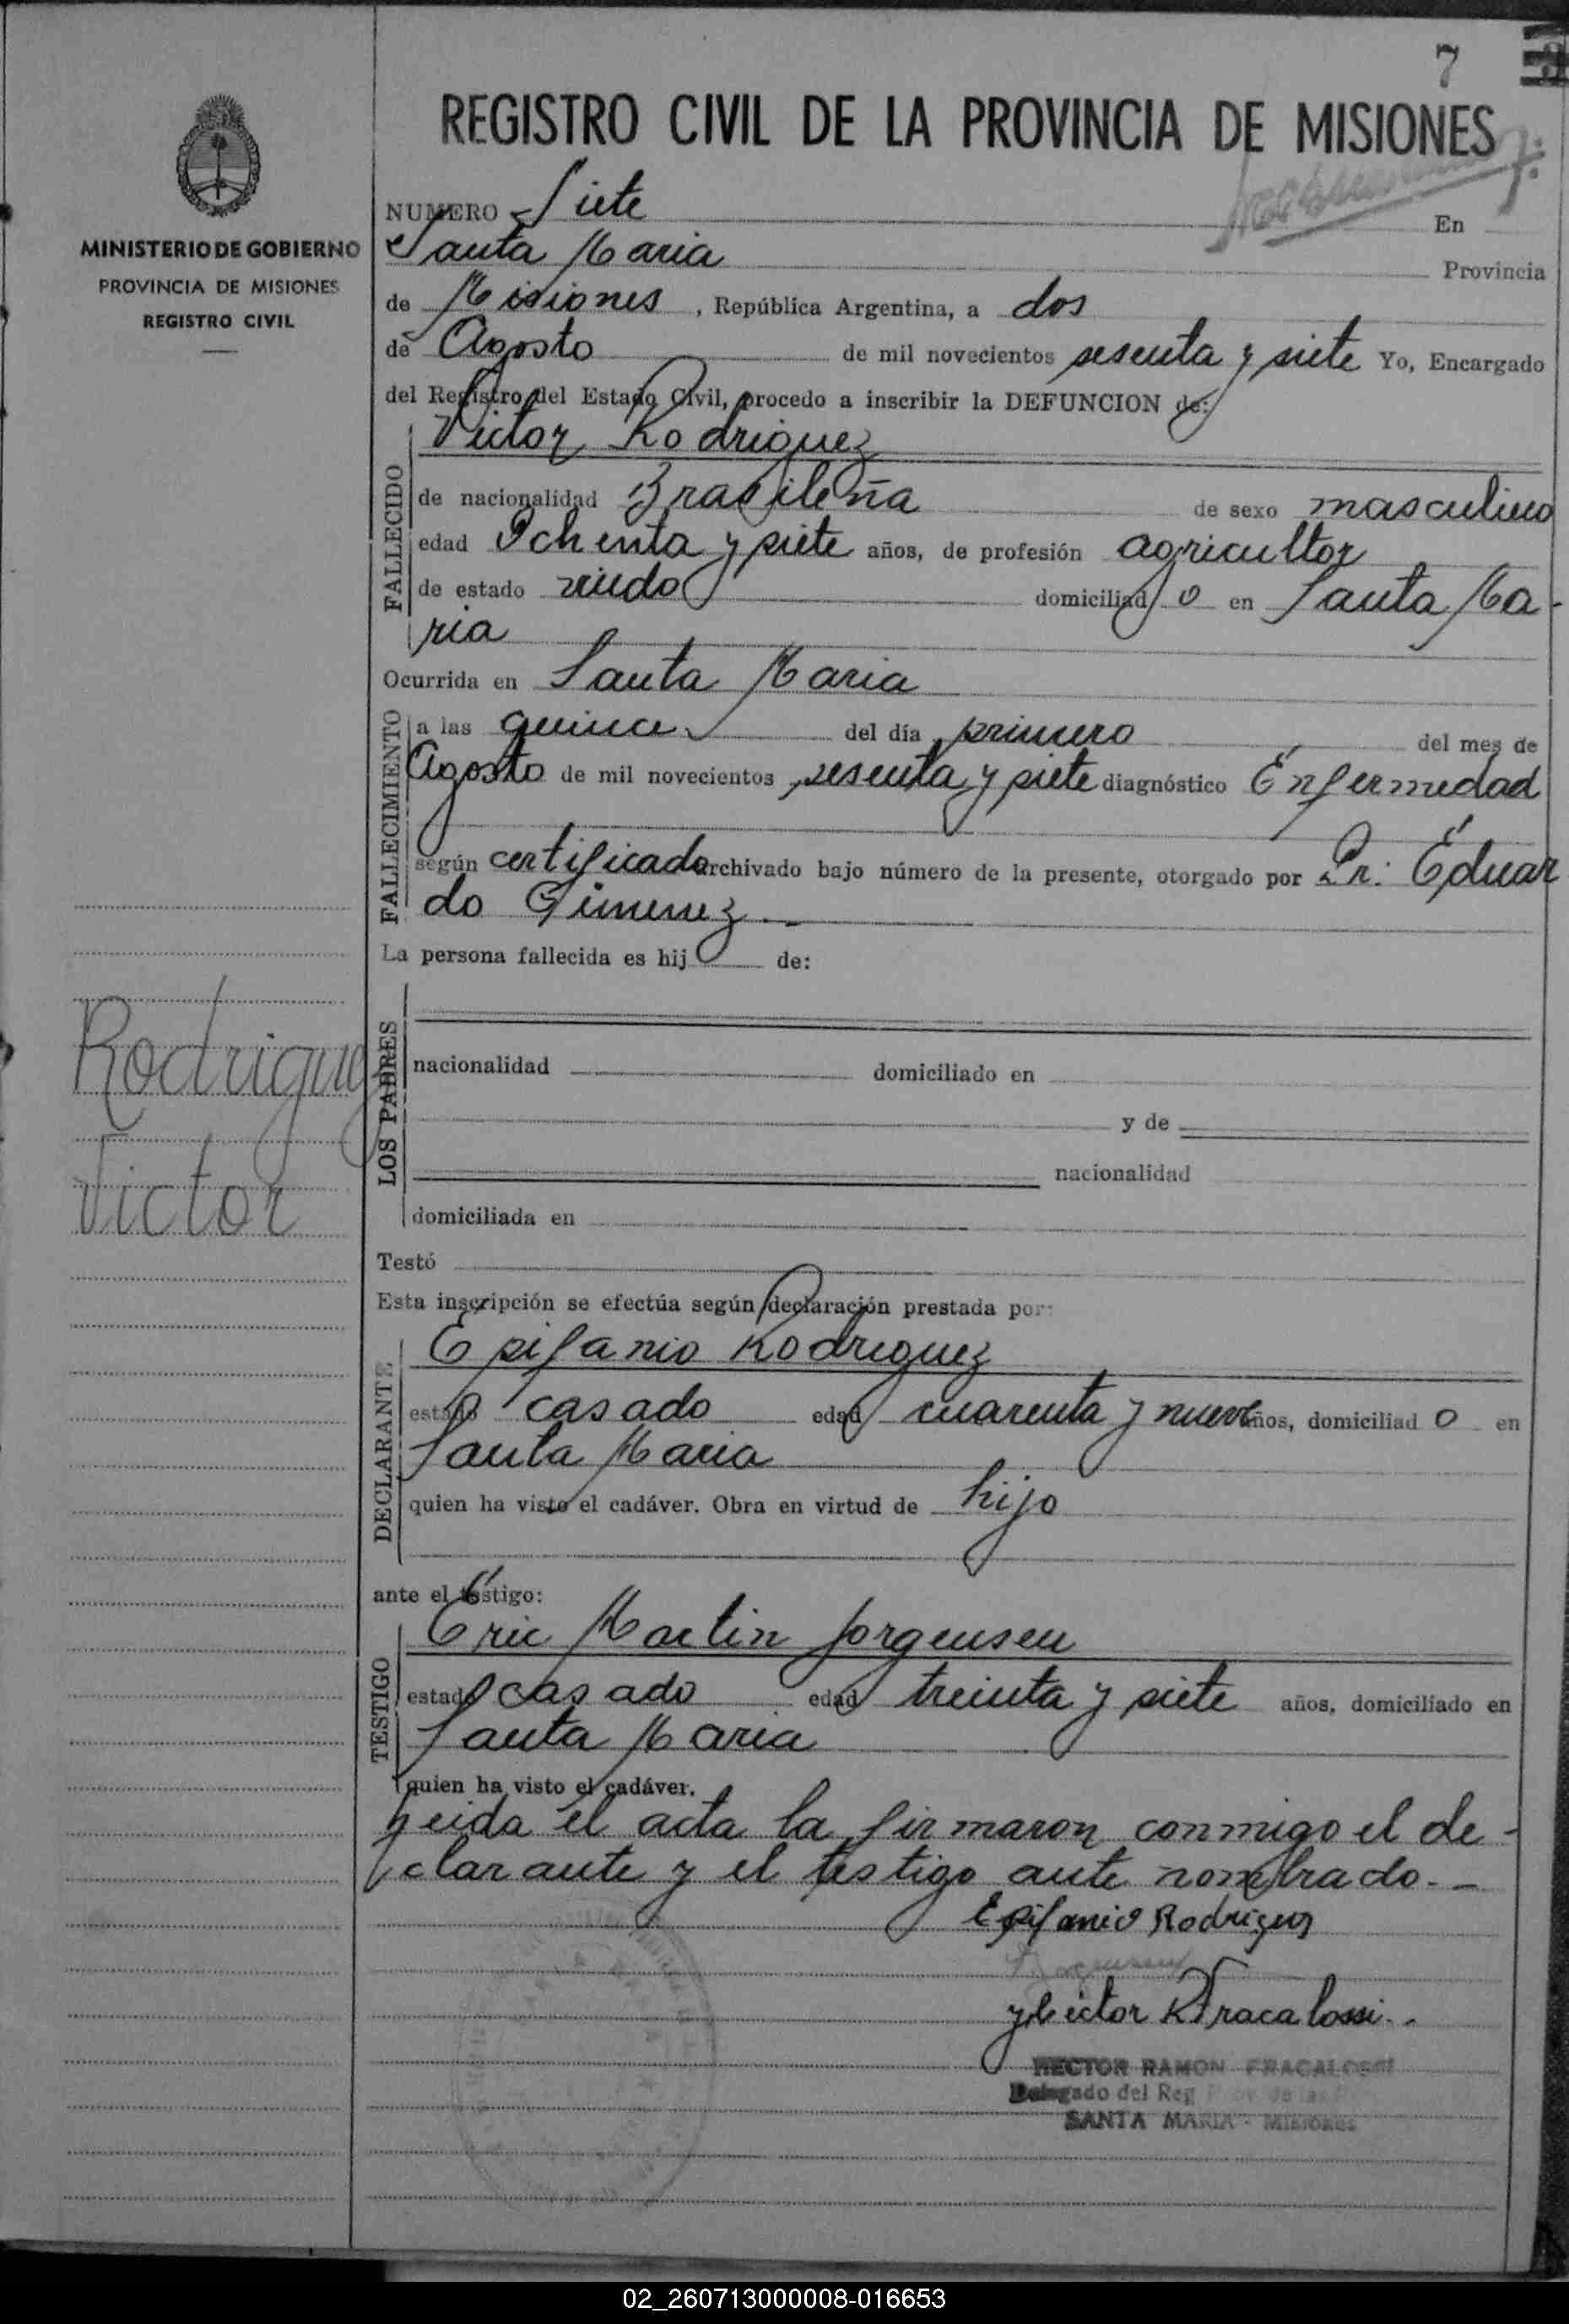 7
REGISTRO CIVIL DE LA PROVINCIA DE MISIONES
MINISTERIO DE GOBIERNO
PROVINCIA DE MISIONES
REGISTRO CIVIL
NUMERO Siete En
Santa Maria Provincia
de Misiones, República Argentina, a dos
de Agosto de mil novecientos sesenta y siete Yo, Encargado
del Registro del Estado Civil, procedo a inscribir la DEFUNCION de:
Victor Rodriguez
FALLECIDO
de nacionalidad Brasileña de sexo masculino
edad Ochenta y siete años, de profesión agricultor
de estado viudo domiciliad o en Santa Ma-
ria
Ocurrida en Santa Maria
FALLECIMIENTO
a las quince del día primero del mes de
Agosto de mil novecientos sesenta y siete diagnóstico Enfermedad
según certificado archivado bajo número de la presente, otorgado por Dr: Eduar
do Gimenez
La persona fallecida es hij o de:
LOS PADRES
nacionalidad domiciliado en
y de
nacionalidad
domiciliada en
Rodriguez
Victor
Testó
Esta inscripción se efectúa según declaración prestada por:
DECLARANTE
Epifanio Rodriguez
estado casado edad cuarenta y nueve años, domiciliad o en
Santa Maria
quien ha visto el cadáver. Obra en virtud de hijo
ante el testigo:
TESTIGO
Eric Martin Jorgensen
estado casado edad treinta y siete años, domiciliado en
Santa Maria
quien ha visto el cadáver.
Leida el acta la firmaron conmigo el de-
clarante y el testigo ante nombrado.-
Epifanio Rodriguez
Hector R Fracalossi
HECTOR RAMON FRACALOSSI
Delegado del Reg
SANTA MARIA - MISIONES
02_260713000008-016653